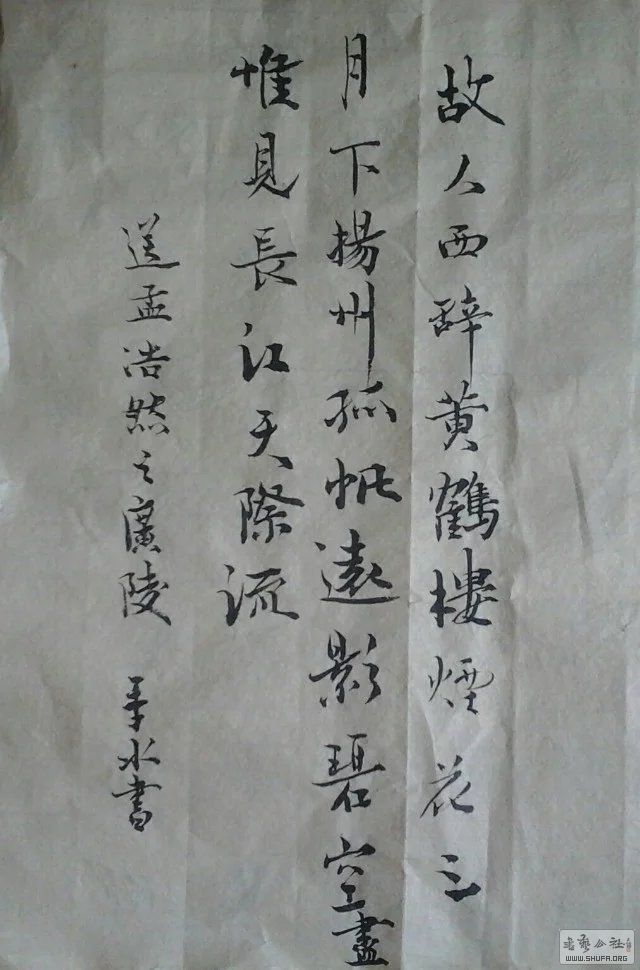 故人西辞黄鶴樓煙花三
月下楊州孤帆遠影碧空盡
惟見長江天際流
送孟浩然之廣陵 水書
書藝公社
WWW.SHUFA.ORG